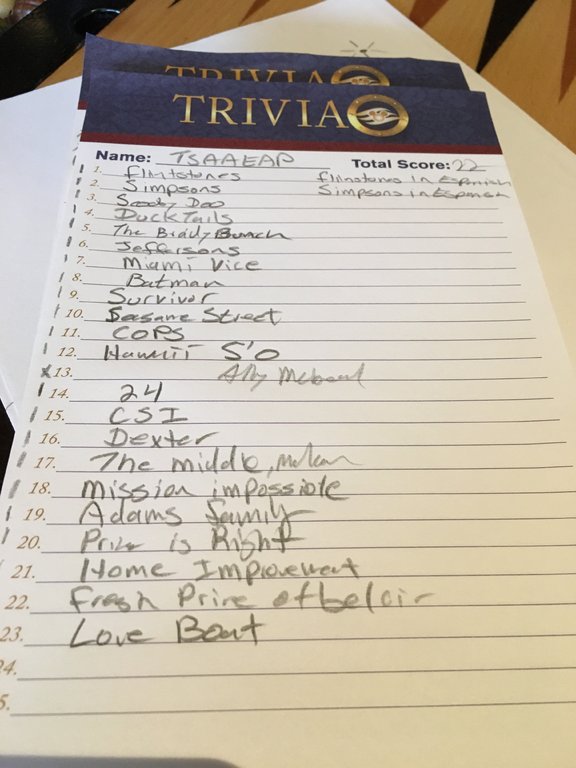 TRIVIA
TRIVIA
Name: TSAAEAP Total Score: 22
1. Flintstones flinstones in Espenish
2. Simpsons Simpsons in Espenish
3. Scooby Doo
4. Duck Tails
5. The Brady Bunch
6. Jeffersons
7. Miami Vice
8. Batman
9. Survivor
10. Seasame Street
11. COPS
12. Hawaii 5'0
x13. Ally Mcbeal
14. 24
15. CSI
16. Dexter
17. The middle,
18. Mission impossible
19. Adams family
20. Price is Right
21. Home Improvement
22. Fresh Prine of belair
23. Love Boat
24.
5.